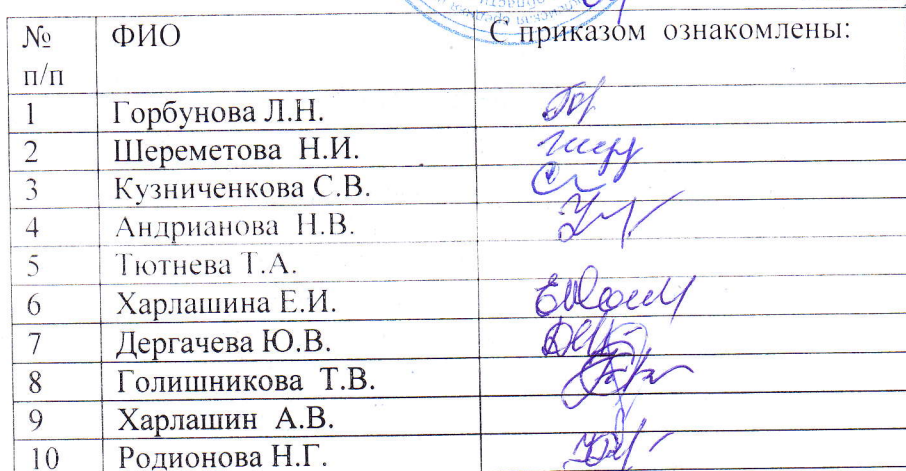 № ФИО С приказом ознакомлены:
п/п
1 Горбунова Л.Н.
2 Шереметова Н.И.
3 Кузниченкова С.В.
4 Андрианова Н.В.
5 Тютнева Т.А.
6 Харлашина Е.И.
7 Дергачева Ю.В.
8 Голишникова Т.В.
9 Харлашин А.В.
10 Родионова Н.Г.